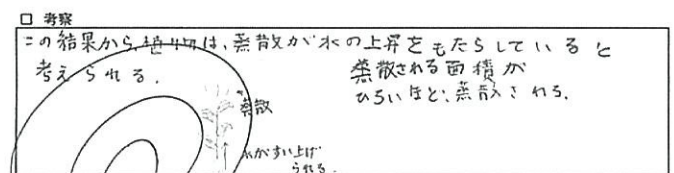 □ 考察
この結果から植物は、蒸散が水の上昇をもたらしていると
考えられる。
蒸散される面積が
ひろいほど、蒸散される。
蒸散
水がすい上げ
られる。